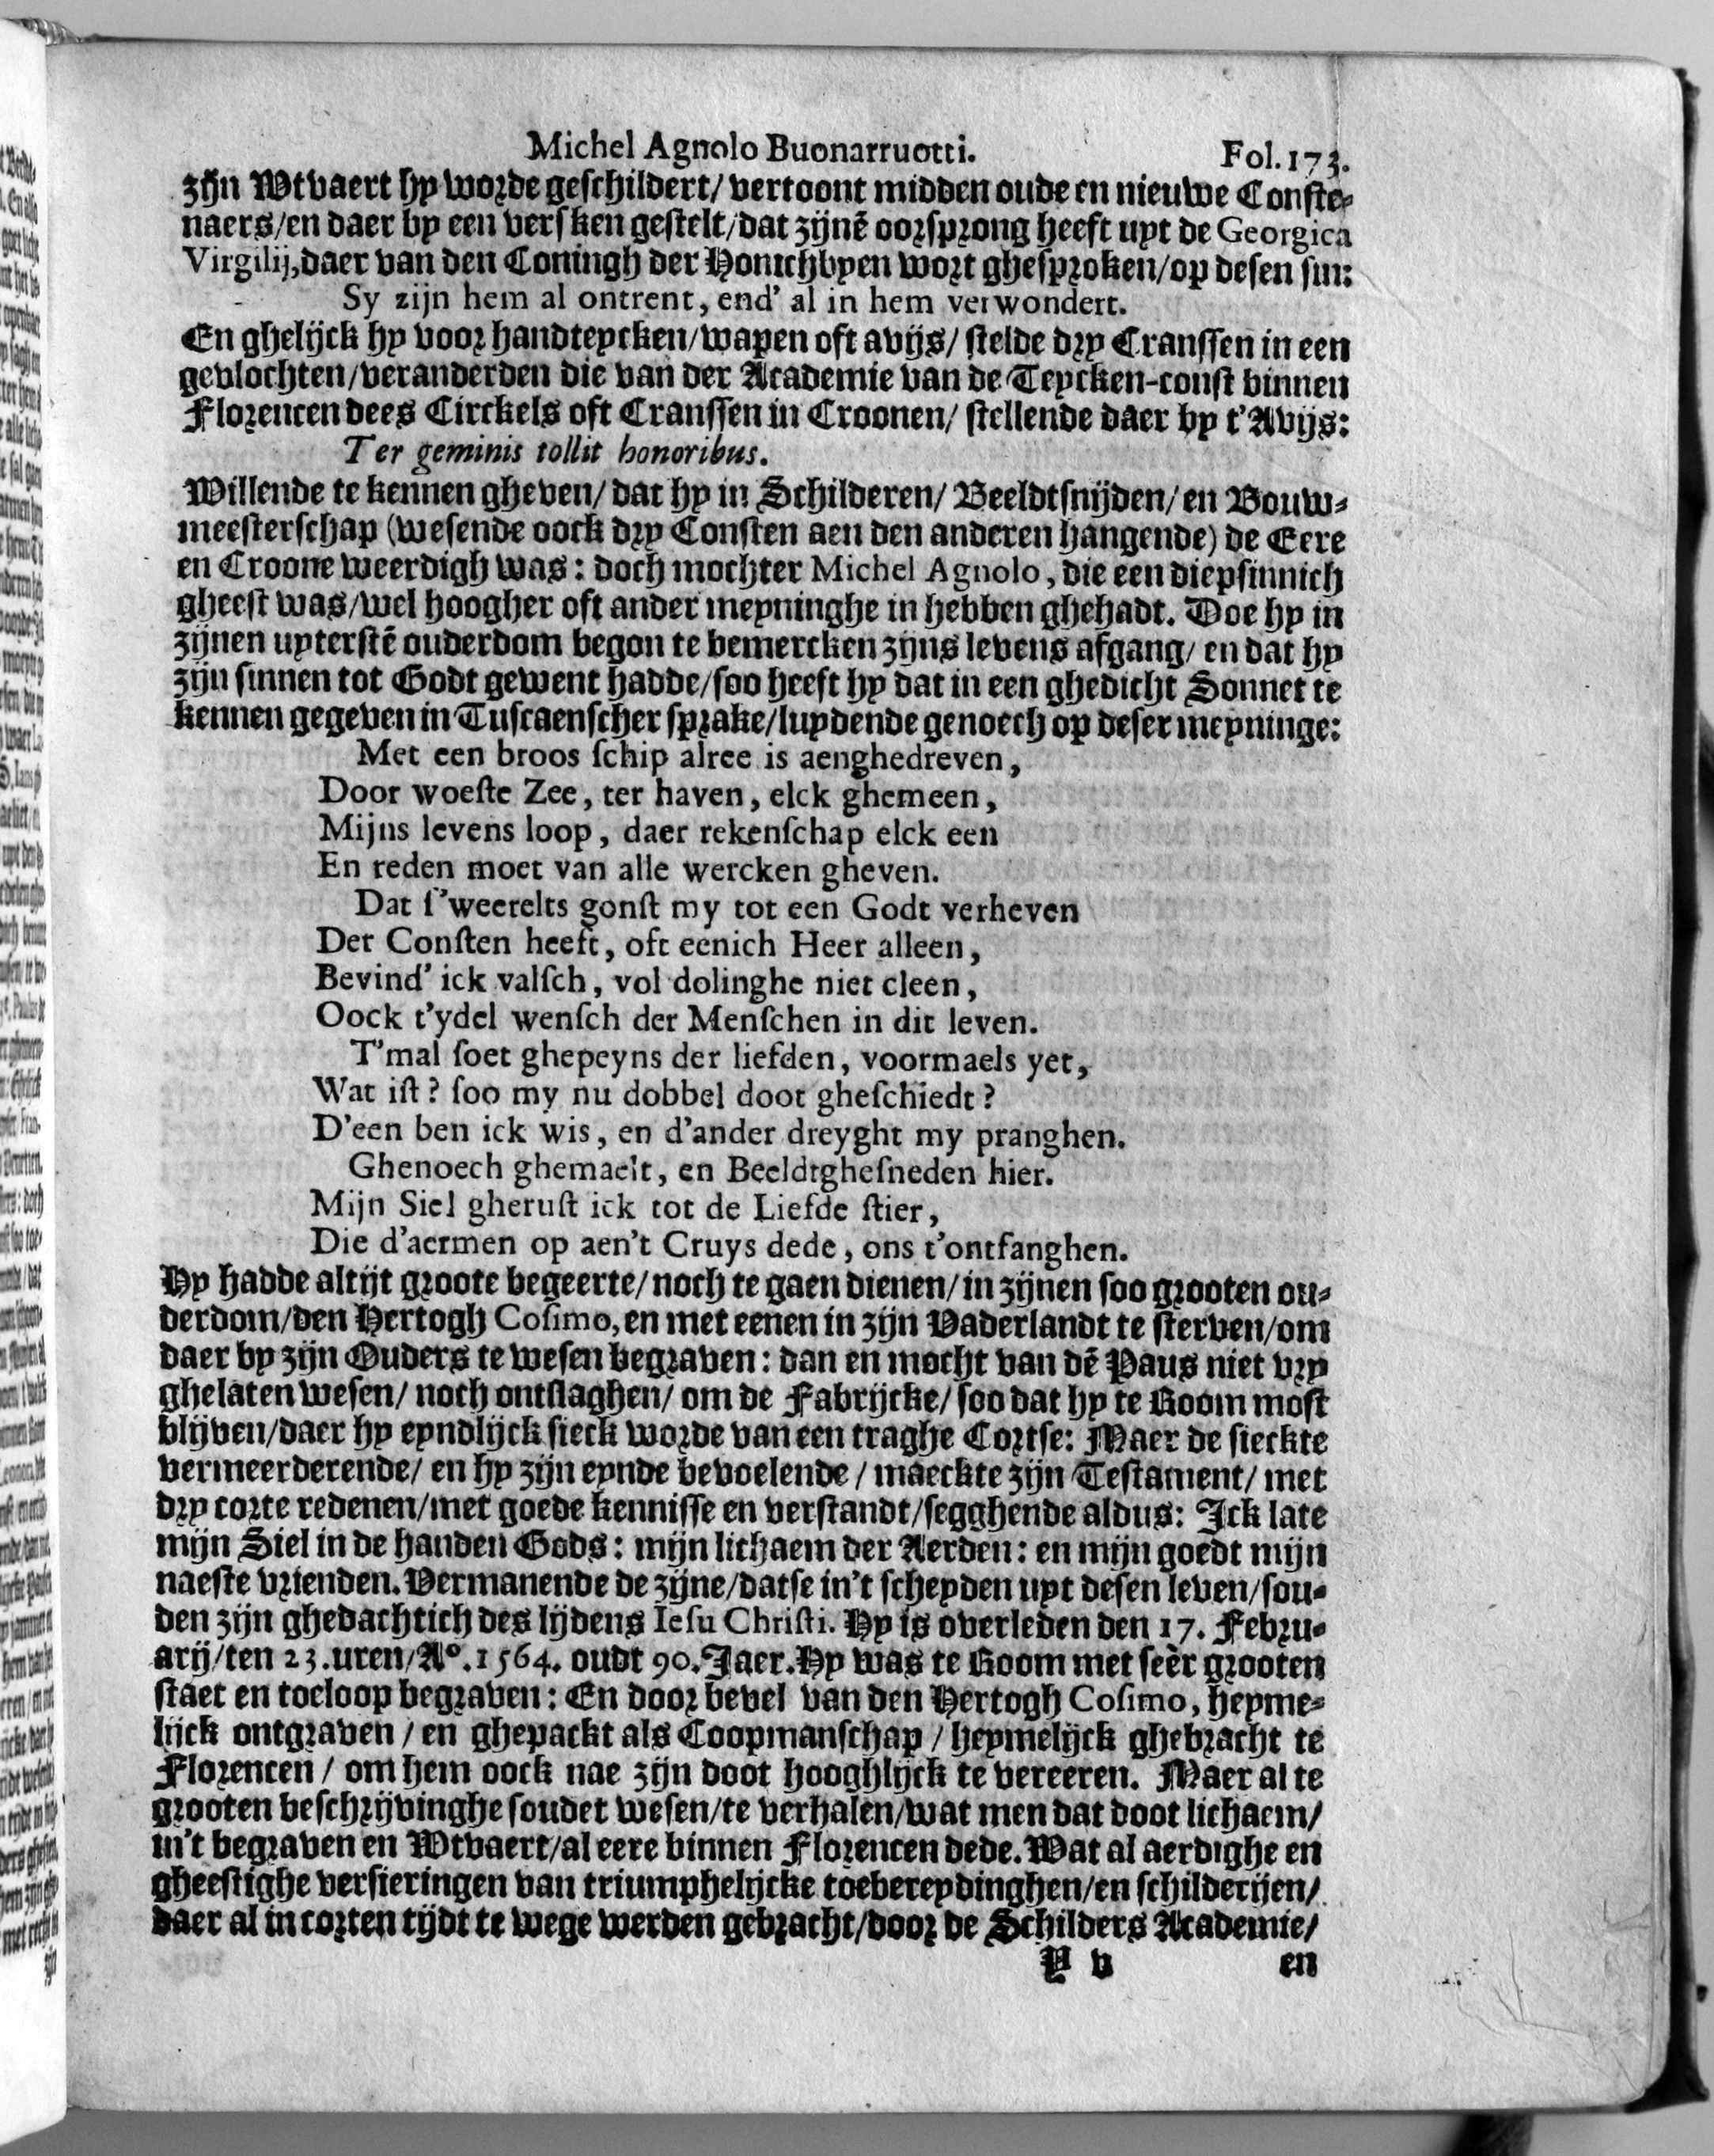 Michel Agnolo Buonarruotti. Fol. 173.
zijn Wtvaert hy worde geschildert/ vertoont midden oude en nieuwe Conste-
naers/en daer by een versken gestelt/dat zijnē oorsprong heeft uyt de Georgica
Virgilij, daer van den Coningh der Honichbyen wort ghesproken/op desen sin:
Sy zijn hem al ontrent, end' al in hem verwondert.
En ghelijck hy voor handteycken/wapen oft avijs/ stelde dry Cranssen in een
gevlochten/veranderden die van der Academie van de Teycken-const binnen
Florencen dees Circkels oft Cranssen in Croonen/ stellende daer by t'Avijs:
Ter geminis tollit honoribus.
Willende te kennen gheven/ dat hy in Schilderen/ Beeldtsnijden/ en Bouw-
meesterschap (wesende oock dry Consten aen den anderen hangende) de Eere
en Croone weerdigh was: doch mochter Michel Agnolo, die een diepsinnich
gheest was/wel hoogher oft ander meyninghe in hebben ghehadt. Doe hy in
zijnen uyterstē ouderdom begon te bemercken zijns levens afgang/ en dat hy
zijn sinnen tot Godt gewent hadde/soo heeft hy dat in een ghedicht Sonnet te
kennen gegeven in Tuscaenscher sprake/luydende genoech op deser meyninge:
Met een broos ſchip alree is aenghedreven,
Door woeſte Zee, ter haven, elck ghemeen,
Mijns levens loop, daer rekenſchap elck een
En reden moet van alle wercken gheven.
Dat ſ'weerelts gonſt my tot een Godt verheven
Der Conſten heeft, oft eenich Heer alleen,
Bevind' ick valſch, vol dolinghe niet cleen,
Oock t'ydel wenſch der Menſchen in dit leven.
T'mal ſoet ghepeyns der liefden, voormaels yet,
Wat iſt? ſoo my nu dobbel doot gheſchiedt?
D'een ben ick wis, en d'ander dreyght my pranghen.
Ghenoech ghemaelt, en Beeldtgheſneden hier.
Mijn Siel gheruſt ick tot de Liefde ſtier,
Die d'aermen op aen't Cruys dede, ons t'ontfanghen.
Hy hadde altijt groote begeerte/ noch te gaen dienen/ in zijnen soo grooten ou-
derdom/den Hertogh Cosimo, en met eenen in zijn Vaderlandt te sterven/om
daer by zijn Ouders te wesen begraven: dan en mocht van dē Paus niet vry
ghelaten wesen/ noch ontslaghen/ om de Fabrijcke/ soo dat hy te Room most
blijven/daer hy eyndlijck sieck worde van een traghe Cortse: Maer de sieckte
vermeerderende/ en hy zijn eynde bevoelende/ maeckte zijn Testament/ met
dry corte redenen/met goede kennisse en verstandt/segghende aldus: Ick late
mijn Siel in de handen Gods: mijn lichaem der Aerden: en mijn goedt mijn
naeste vrienden. Vermanende de zijne/datse in't scheyden uyt desen leven/sou-
den zijn ghedachtich des lijdens Iesu Christi. Hy is overleden den 17. Febru-
arij/ten 23.uren/A°. 1564. oudt 90. Jaer. Hy was te Room met seèr grooten
staet en toeloop begraven: En door bevel van den Hertogh Cosimo, heyme-
lijck ontgraven / en ghepackt als Coopmanschap / heymelijck ghebracht te
Florencen / om hem oock nae zijn doot hooghlijck te vereeren. Maer al te
grooten beschrijvinghe soudet wesen/te verhalen/wat men dat doot lichaem/
in't begraven en Wtvaert/al eere binnen Florencen dede. Wat al aerdighe en
gheestighe versieringen van triumphelijcke toebereydinghen/en schilderijen/
daer al in corten tijdt te wege werden gebracht/door de Schilders Academie/
Y v en